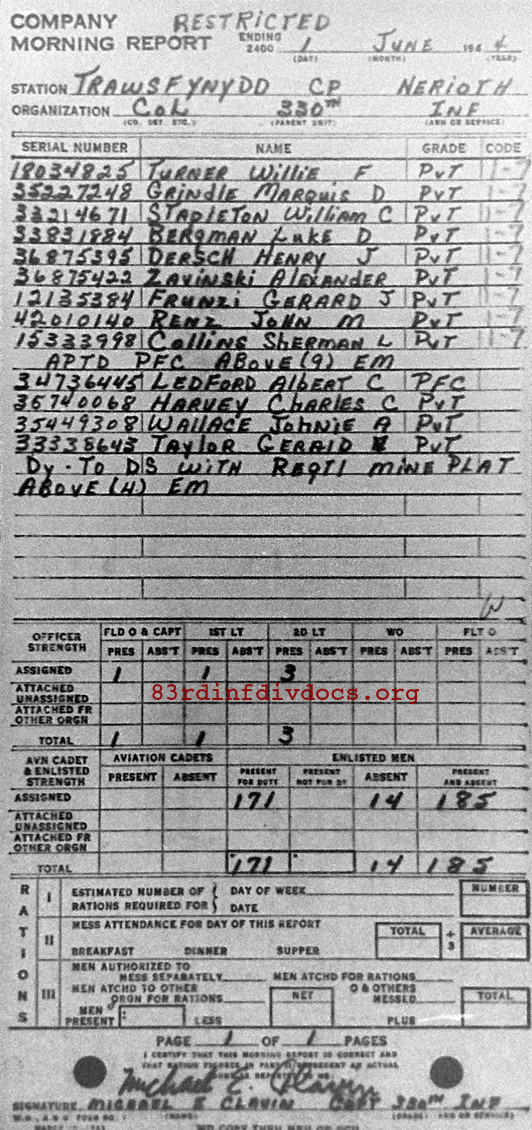 COMPANY RESTRICTED
MORNING REPORT ENDING 2400 1 JUNE 1944
(DATE) (MONTH) (YEAR)
STATION TRAWSFYNYDD CP NERIOTH
ORGANIZATION Co L 330TH INF
(CO. DET. ETC.) (PARENT UNIT) (ARM OR SERVICE)
SERIAL NUMBER NAME GRADE CODE
18034825 TURNER Willie F PvT 1-7
35227248 GRINDLE MARQUIS D PvT 1-7
33214671 STAPLETON William C PvT 1-7
33831884 BERGMAN LUKE D PvT 1-7
36875395 DERSCH HENRY J PvT 1-7
36875422 ZAVINSKI AlEXANDER PvT 1-7
12135384 FRUNZI GERARD J PvT 1-7
42010140 RENZ JOHN M PvT 1-7
15333998 Collins SHERMAN L PvT 1-7
APTD PFC ABOVE (9) EM
34736445 LEDFORD Albert C PFC
35740068 HARVEY CHARLES C PvT
35449308 WALLACE JOHNIE A PvT
33338643 TAYLOR GERALD PvT
Dy - To DS WITH REGTl MINE PLAT
ABOVE (4) EM
W
OFFICER STRENGTH FLD O & CAPT 1ST LT 2D LT WO FLT O
PRES ABS'T PRES ABS'T PRES ABS'T PRES ABS'T PRES ABS'T
ASSIGNED 1 1 3
ATTACHED UNASSIGNED
83rdinfdivdocs.org
ATTACHED FR OTHER ORGN
TOTAL 1 1 3
AVN CADET & ENLISTED STRENGTH AVIATION CADETS ENLISTED MEN
PRESENT ABSENT PRESENT FOR DUTY PRESENT NOT FOR DY ABSENT PRESENT AND ABSENT
ASSIGNED 171 14 185
ATTACHED UNASSIGNED
ATTACHED FR OTHER ORGN
TOTAL 171 14 185
RATIONS
I ESTIMATED NUMBER OF RATIONS REQUIRED FOR { DAY OF WEEK DATE NUMBER
II MESS ATTENDANCE FOR DAY OF THIS REPORT TOTAL ÷ 3 AVERAGE
BREAKFAST DINNER SUPPER
III MEN AUTHORIZED TO MESS SEPARATELY MEN ATCHD FOR RATIONS
MEN ATCHD TO OTHER ORGN FOR RATIONS NET O & OTHERS MESSED TOTAL
MEN PRESENT LESS PLUS
PAGE 1 OF 1 PAGES
I CERTIFY THAT THIS MORNING REPORT IS CORRECT AND
THAT RATION FIGURES IN PART III REPRESENT AN ACTUAL
Michael E. Clavin
SIGNATURE MICHAEL E CLAVIN CAPT 330TH INF
W.D., A.G.O. FORM NO. 1 (NAME) (GRADE) (ARM OR SERVICE)